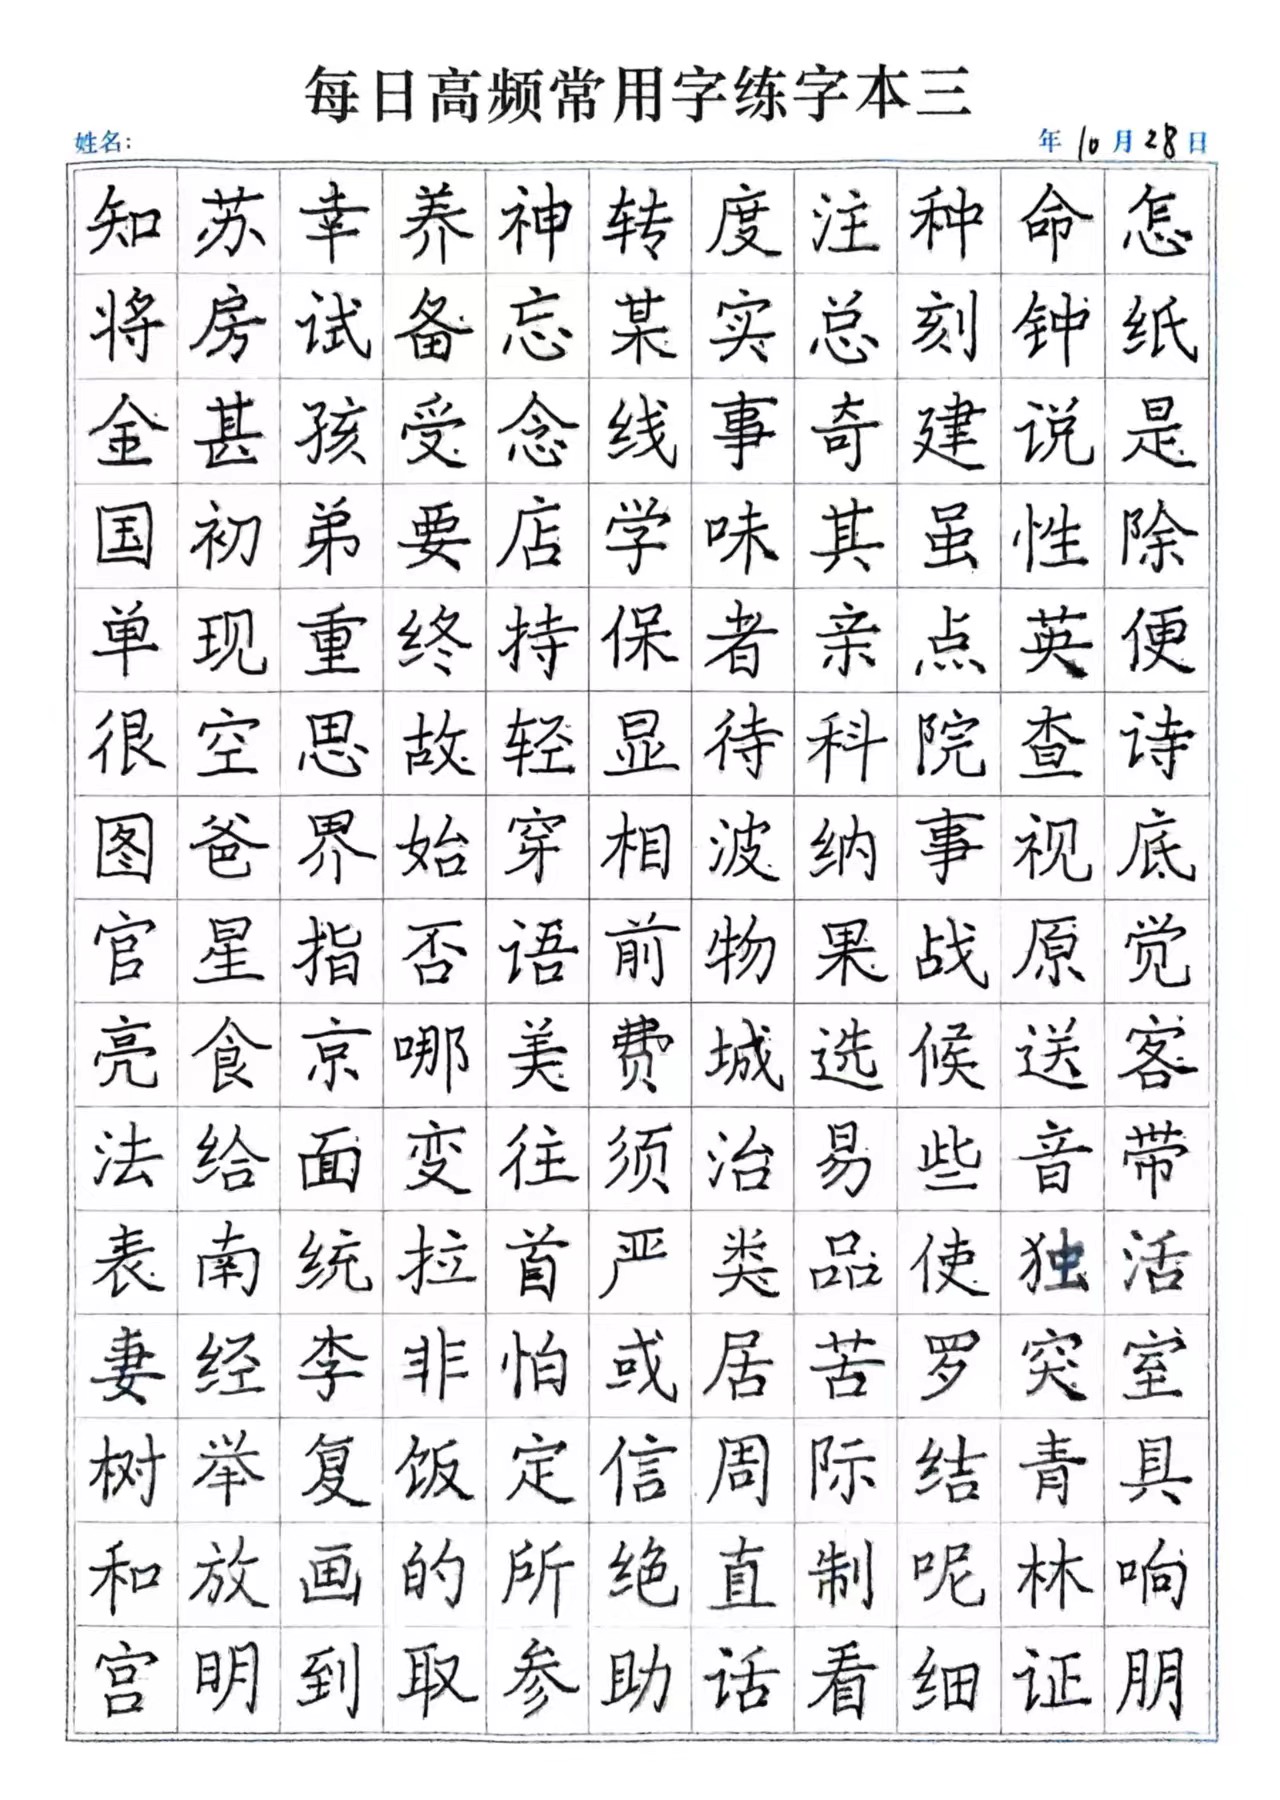 每日高频常用字练字本三
姓名： 年 10 月 28 日
知 苏 幸 养 神 转 度 注 种 命 怎
将 房 试 备 忘 某 实 总 刻 钟 纸
金 甚 孩 受 念 线 事 奇 建 说 是
国 初 弟 要 店 学 味 其 虽 性 除
单 现 重 终 持 保 者 亲 点 英 便
很 空 思 故 轻 显 待 科 院 查 诗
图 爸 界 始 穿 相 波 纳 事 视 底
官 星 指 否 语 前 物 果 战 原 觉
亮 食 京 哪 美 费 城 选 候 送 客
法 给 面 变 往 须 治 易 些 音 带
表 南 统 拉 首 严 类 品 使 独 活
妻 经 李 非 怕 或 居 苦 罗 突 室
树 举 复 饭 定 信 周 际 结 青 具
和 放 画 的 所 绝 直 制 呢 林 响
宫 明 到 取 参 助 话 看 细 证 朋